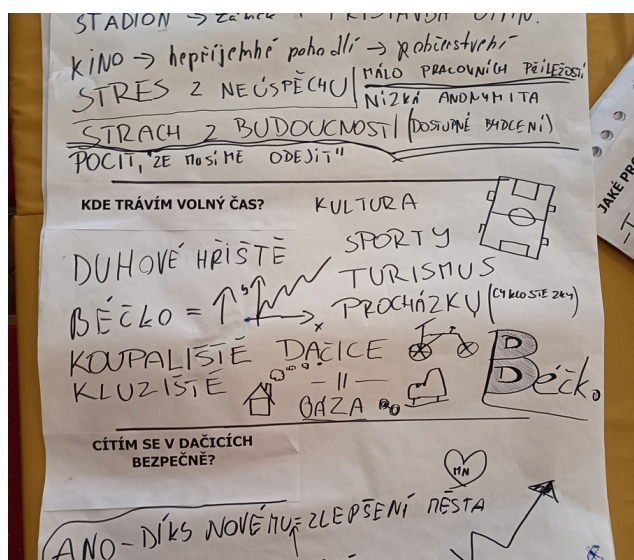 STADION → zámek
KINO → nepříjemné pohodlí → občerstvení
STRES Z NEÚSPĚCHU
MÁLO PRACOVNÍCH PŘÍLEŽOSTÍ
NÍZKÁ ANONYMITA
STRACH Z BUDOUCNOSTI (DOSTUPNÉ BYDLENÍ)
POCIT, "ŽE MUSÍME ODEJÍT"
KDE TRÁVÍM VOLNÝ ČAS?
KULTURA
DUHOVÉ HŘIŠTĚ
SPORTY
TURISMUS
BÉČKO =
PROCHÁZKY (CYKLOSTEZKY)
KOUPALIŠTĚ DAČICE
KLUZIŠTĚ — 11 —
OÁZA
Béčko
D
CÍTÍM SE V DAČICÍCH
BEZPEČNĚ?
MN
ANO - DÍKS NOVÉMU ZLEPŠENÍ MĚSTA
JAKÉ PRO